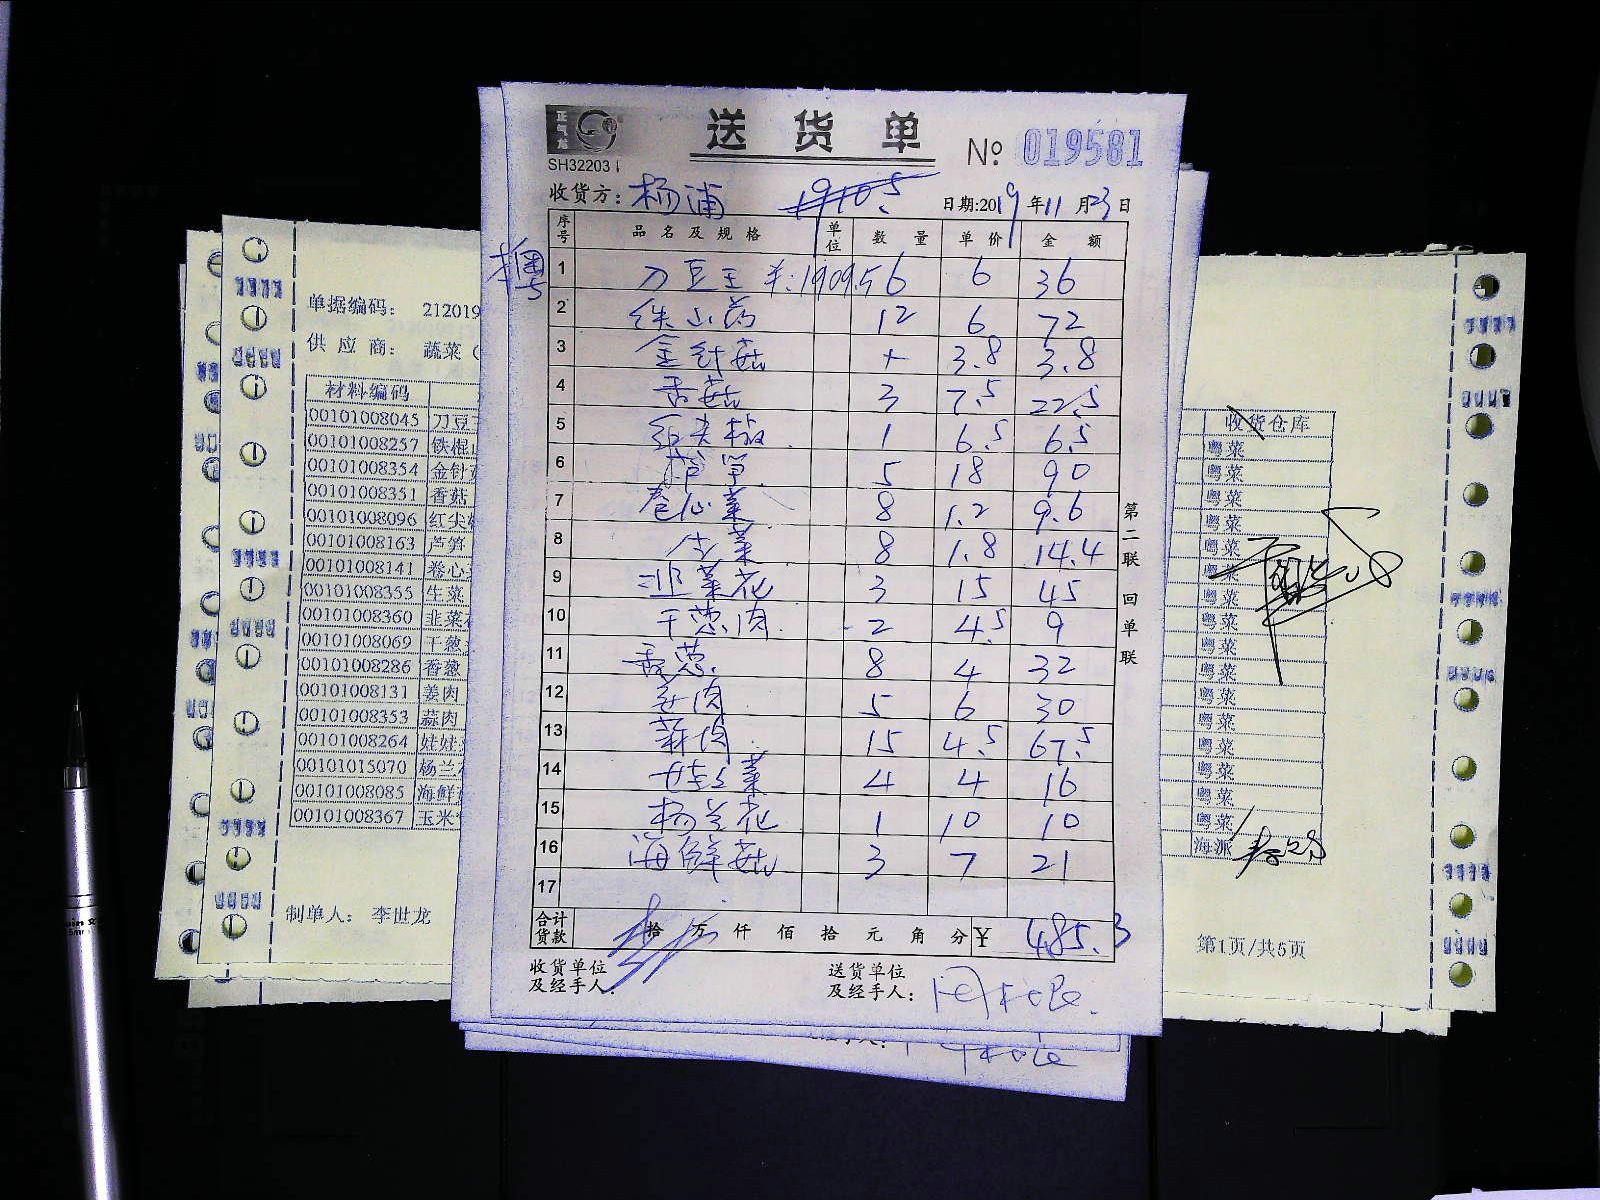 正气龙
送货单
№ 019581
SH32203
收货方: 杨浦 19105
日期:2019年11月23日
序号 品名及规格 单位 数量 单价 金额
1 刀豆王 1909.5 6 6 36
2 铁山药 12 6 72
3 金针菇 1 3.8 3.8
4 香菇 3 7.5 22.5
5 红尖椒 1 6.5 6.5
6 5 18 90
7 卷心菜 8 1.2 9.6
8 生菜 8 1.8 14.4
9 韭菜花 3 15 45
10 干葱肉 2 4.5 9
11 香葱 8 4 32
12 姜肉 5 6 30
13 蒜肉 15 4.5 67.5
14 娃娃菜 4 4 16
15 杨兰花 1 10 10
16 海鲜菇 3 7 21
17
合计货款 拾万仟佰拾元角分 ¥ 485.3
收货单位及经手人:
送货单位及经手人:
第二联 回单联
单据编码: 212019
供应商: 蔬菜(
材料编码
00101008045 刀豆
00101008257 铁棍
00101008354 金针
00101008351 香菇
00101008096 红尖
00101008163 芦笋
00101008141 卷心
00101008355 生菜
00101008360 韭菜
00101008069 干葱
00101008286 香葱
00101008131 姜肉
00101008353 蒜肉
00101008264 娃娃
00101015070 杨兰
00101008085 海鲜
00101008367 玉米
制单人: 李世龙
收货仓库
粤菜
粤菜
粤菜
粤菜
粤菜
粤菜
粤菜
粤菜
粤菜
粤菜
粤菜
粤菜
粤菜
粤菜
粤菜
粤菜
海派
第1页/共5页